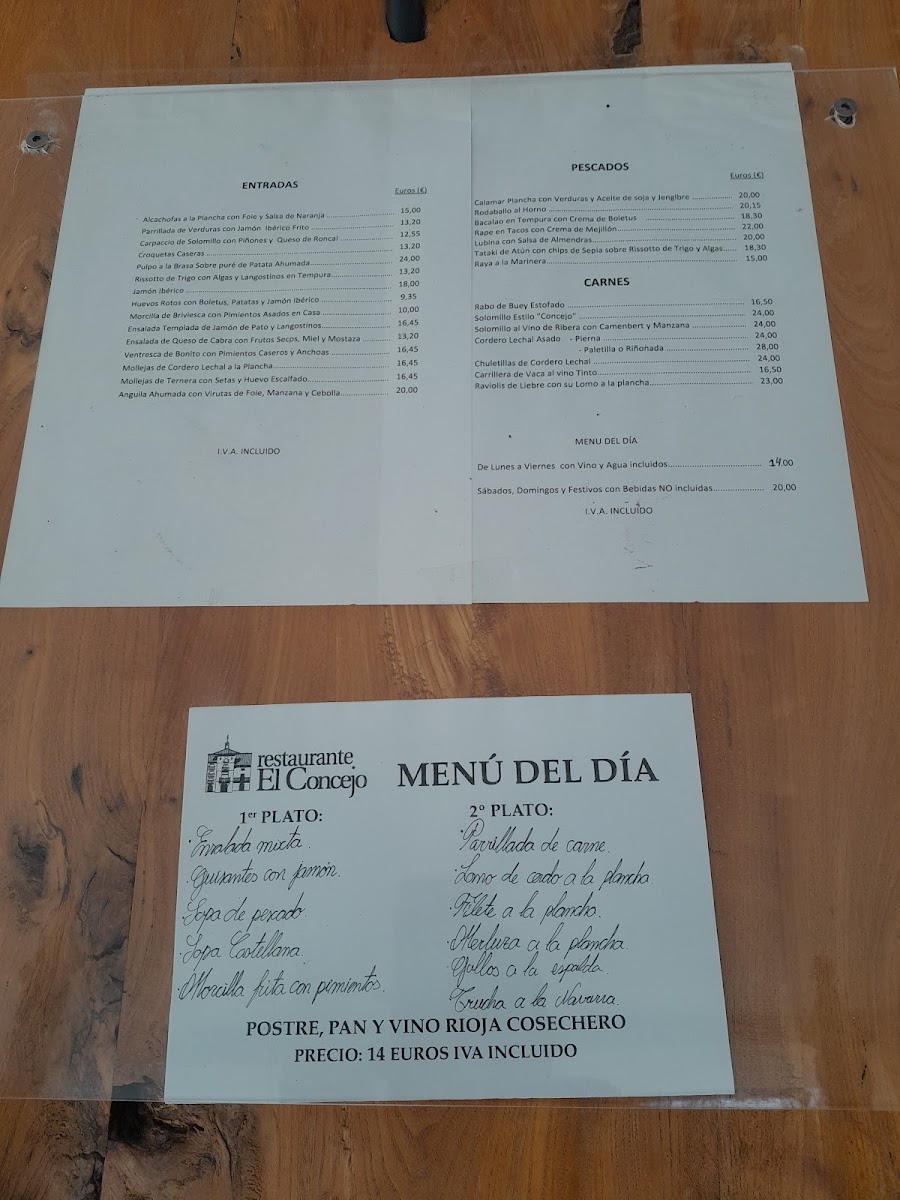 ENTRADAS
Euros (€)
Alcachofas a la Plancha con Foie y Salsa de Naranja ........ 15,00
Parrillada de Verduras con Jamón Ibérico Frito ........ 13,20
Carpaccio de Solomillo con Piñones y Queso de Roncal ........ 12,55
Croquetas Caseras ........ 13,20
Pulpo a la Brasa Sobre puré de Patata Ahumada ........ 24,00
Rissotto de Trigo con Algas y Langostinos en Tempura ........ 13,20
Jamón Ibérico ........ 18,00
Huevos Rotos con Boletus, Patatas y Jamón Ibérico ........ 9,35
Morcilla de Briviesca con Pimientos Asados en Casa ........ 10,00
Ensalada Templada de Jamón de Pato y Langostinos ........ 16,45
Ensalada de Queso de Cabra con Frutos Secos, Miel y Mostaza ........ 13,20
Ventresca de Bonito con Pimientos Caseros y Anchoas ........ 16,45
Mollejas de Cordero Lechal a la Plancha ........ 16,45
Mollejas de Ternera con Setas y Huevo Escalfado ........ 16,45
Anguila Ahumada con Virutas de Foie, Manzana y Cebolla ........ 20,00
I.V.A. INCLUIDO
PESCADOS
Euros (€)
Calamar Plancha con Verduras y Aceite de soja y Jengibre ........ 20,00
Rodaballo al Horno ........ 20,15
Bacalao en Tempura con Crema de Boletus ........ 18,30
Rape en Tacos con Crema de Mejillón ........ 22,00
Lubina con Salsa de Almendras ........ 20,00
Tataki de Atún con chips de Sepia sobre Rissotto de Trigo y Algas ........ 18,30
Raya a la Marinera ........ 15,00
CARNES
Rabo de Buey Estofado ........ 16,50
Solomillo Estilo "Concejo" ........ 24,00
Solomillo al Vino de Ribera con Camenbert y Manzana ........ 24,00
Cordero Lechal Asado - Pierna ........ 24,00
- Paletilla o Riñonada ........ 28,00
Chuletillas de Cordero Lechal ........ 24,00
Carrillera de Vaca al vino Tinto ........ 16,50
Raviolis de Liebre con su Lomo a la plancha ........ 23,00
MENU DEL DÍA
De Lunes a Viernes con Vino y Agua incluidos ........ 14.00
Sábados, Domingos y Festivos con Bebidas NO incluidas ........ 20,00
I.V.A. INCLUIDO
restaurante
El Concejo
MENÚ DEL DÍA
1er PLATO:
·Ensalada mixta.
·Guisantes con jamón.
·Sopa de pescado.
·Sopa Castellana.
·Morcilla frita con pimientos.
2º PLATO:
·Parrillada de carne.
·Lomo de cerdo a la plancha.
·Filete a la plancha.
·Merluza a la plancha.
·Gallos a la espalda.
·Trucha a la Navarra.
POSTRE, PAN Y VINO RIOJA COSECHERO
PRECIO: 14 EUROS IVA INCLUIDO